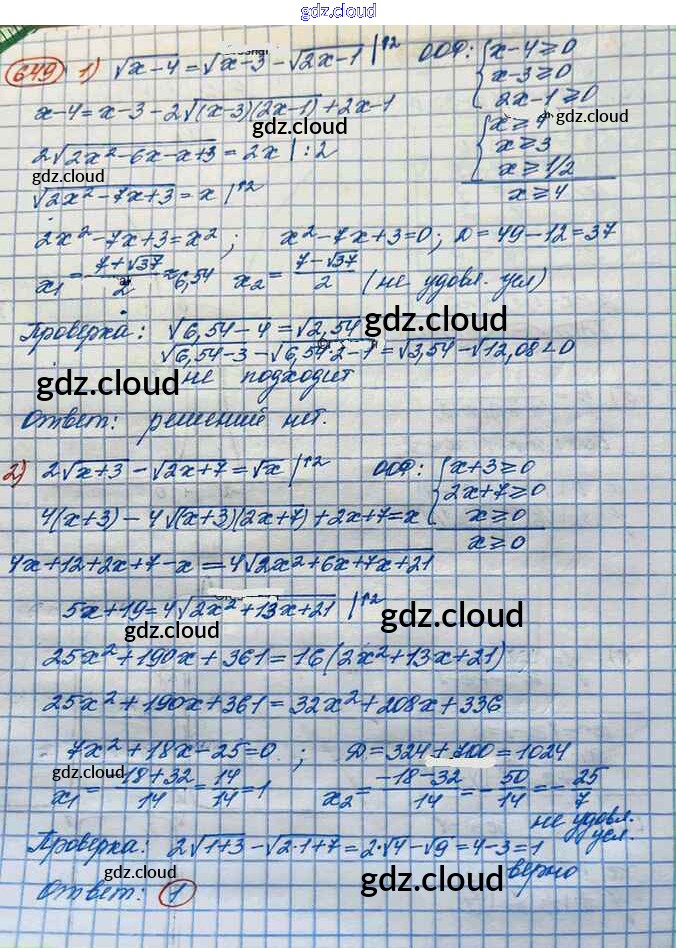 gdz.cloud
gdz.cloud
649 1) √x-4 = √x-3 - √2x-1 |↑2 ООФ: { x-4≥0
x-3≥0
2x-1≥0
x-4=x-3-2√(x-3)(2x-1)+2x-1
gdz.cloud
gdz.cloud
{ x≥4
x≥3
x≥1/2
x≥4
2√2x²-6x-x+3 = 2x |:2
gdz.cloud
√2x²-7x+3 = x |↑2
2x²-7x+3=x²; x²-7x+3=0; D=49-12=37
x₁=(7+√37)/2≈6,54 x₂=(7-√37)/2 (не удовл. усл)
Проверка: √6,54-4 = √2,54
gdz.cloud
√6,54-3 - √6,54·2-1 = √3,54 - √12,08<0
gdz.cloud
не подходит
Ответ: решений нет.
2) 2√x+3 - √2x+7 = √x |↑2 ООФ: { x+3≥0
2x+7≥0
x≥0
x≥0
4(x+3)-4√(x+3)(2x+7)+2x+7=x
4x+12+2x+7-x=4√2x²+6x+7x+21
5x+19=4√2x²+13x+21 |↑2
gdz.cloud
gdz.cloud
25x²+190x+361=16(2x²+13x+21)
25x²+190x+361=32x²+208x+336
7x²+18x-25=0; D=324+700=1024
gdz.cloud
x₁=(-18+32)/14=14/14=1 x₂=(-18-32)/14=-50/14=-25/7
не удовл.
усл.
Проверка: 2√1+3 - √2·1+7 = 2·√4 - √9 = 4-3=1
верно
gdz.cloud
gdz.cloud
Ответ: 1